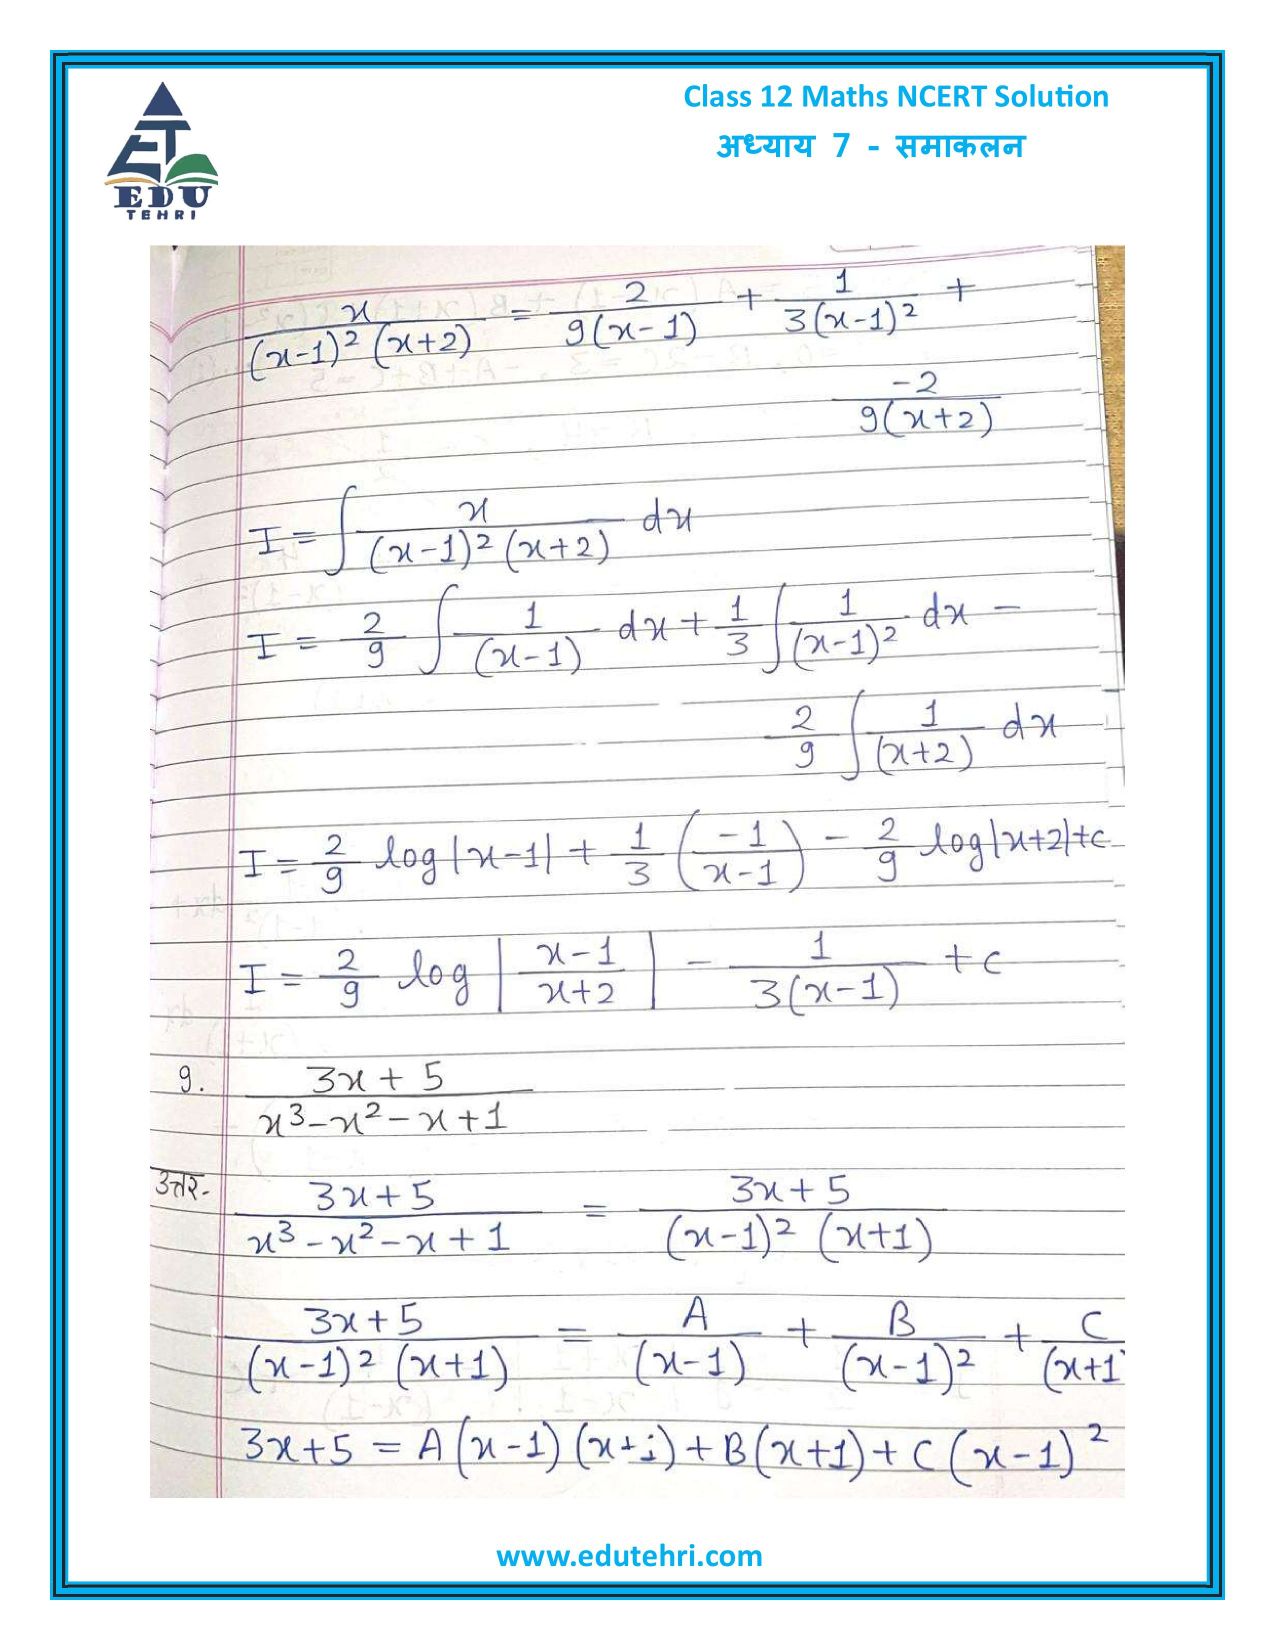 Class 12 Maths NCERT Solution
अध्याय 7 - समाकलन
EDU
TEHRI
x/((x-1)² (x+2)) = 2/(9(x-1)) + 1/(3(x-1)²) +
-2/(9(x+2))
I = ∫ x/((x-1)² (x+2)) dx
I = 2/9 ∫ 1/(x-1) dx + 1/3 ∫ 1/(x-1)² dx -
2/9 ∫ 1/(x+2) dx
I = 2/9 log|x-1| + 1/3 (-1/(x-1)) - 2/9 log|x+2|+c
I = 2/9 log |(x-1)/(x+2)| - 1/(3(x-1)) + c
9. (3x+5)/(x³-x²-x+1)
उत्तर- (3x+5)/(x³-x²-x+1) = (3x+5)/((x-1)² (x+1))
(3x+5)/((x-1)² (x+1)) = A/(x-1) + B/(x-1)² + C/(x+1)
3x+5 = A(x-1)(x+1)+B(x+1)+C(x-1)²
www.edutehri.com